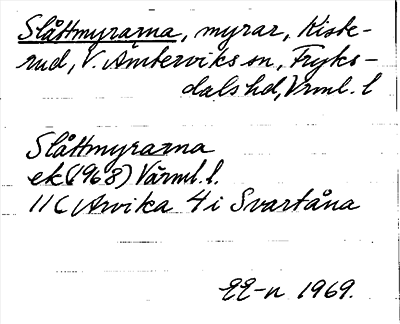 Slåttmyrarna, myrar, Kiste-
rud, V. Ämterviks sn, Fryks-
dals hd, Vrml. l
Slåttmyrarna
ek (1968) Värml. l.
11C Arvika 4i Svartåna
EE-n 1969.